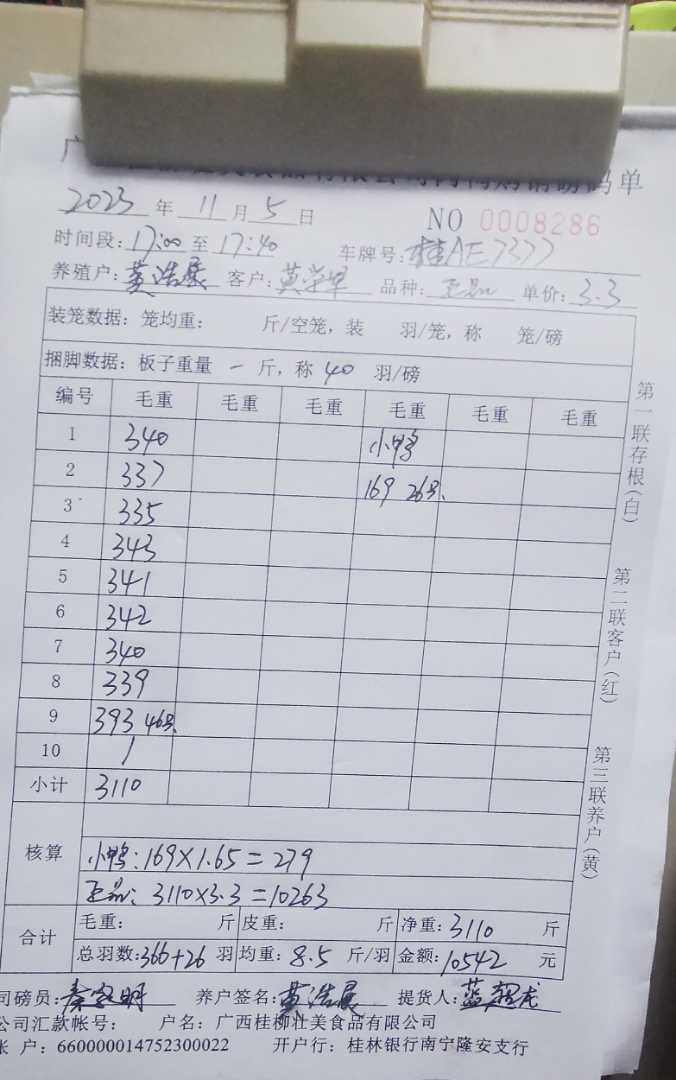 购销磅码单
2023年11月5日 NO 0008286
时间段:17:00至17:40 车牌号:桂AE7377
养殖户:黄浩展 客户: 品种:正品 单价:3.3
装笼数据:笼均重: 斤/空笼,装 羽/笼,称 笼/磅
捆脚数据:板子重量 一 斤,称 40 羽/磅
编号 毛重 毛重 毛重 毛重 毛重 毛重
1 340 小鸭
2 337 169 26只
3 335
4 343
5 341
6 342
7 340
8 339
9 393 46只
10 /
小计 3110
核算
小鸭:169×1.65=279
正品:3110×3.3=10263
合计 毛重: 斤 皮重: 斤 净重:3110 斤
总羽数:366+26 羽 均重:8.5 斤/羽 金额:10542 元
司磅员: 养户签名:黄浩展 提货人:蓝超龙
公司汇款帐号: 户名:广西桂柳壮美食品有限公司
帐 户:660000014752300022 开户行:桂林银行南宁隆安支行
第一联存根(白)
第二联客户(红)
第三联养户(黄)